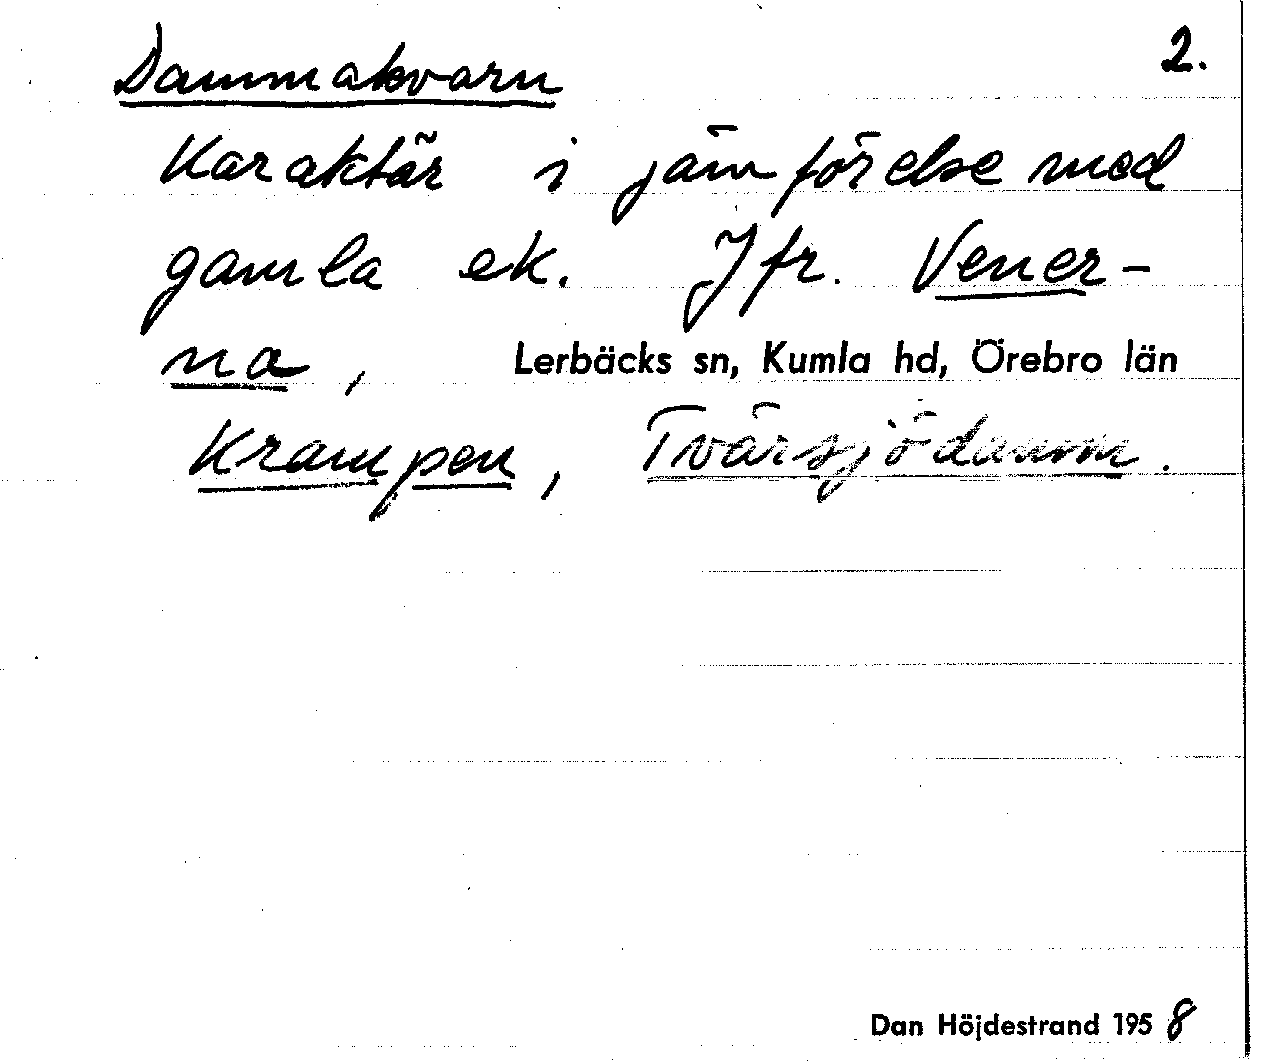 Dammakvarn 2.
Karaktär i jämförelse med
gamla ek. Jfr. Vener-
na, Lerbäcks sn, Kumla hd, Örebro län
Krampen, Tvärsjödamm.
Dan Höjdestrand 1958